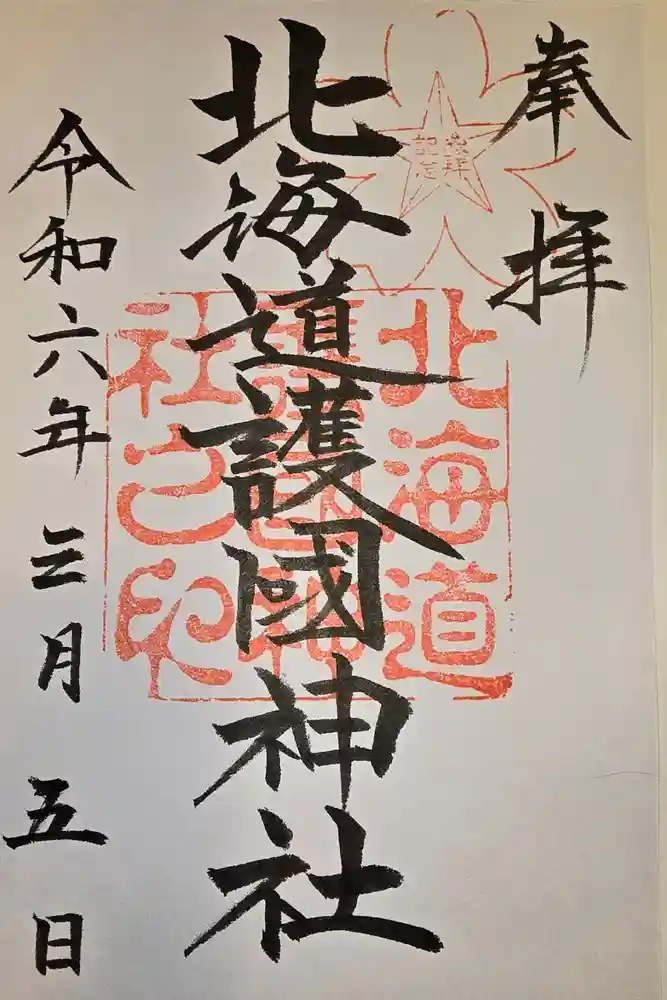 奉拝
参拝
記念
北海道護國神社
北海道
護國神
社之印
令和六年三月五日